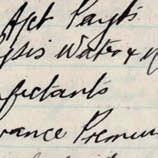 Aft Payts
ysis Water &
fectants
rance Premiu